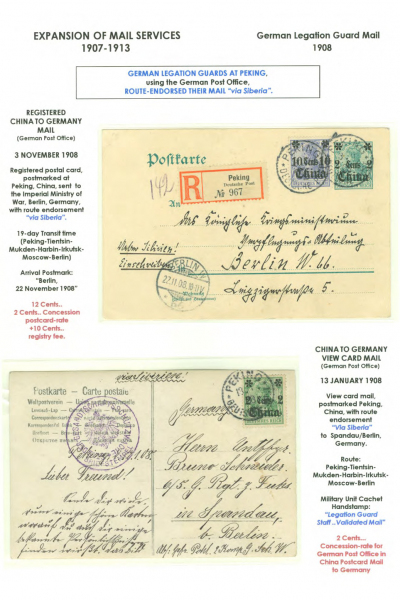 EXPANSION OF MAIL SERVICES
1907-1913
German Legation Guard Mail
1908
GERMAN LEGATION GUARDS AT PEKING,
using the German Post Office,
ROUTE-ENDORSED THEIR MAIL “via Siberia”.
REGISTERED
CHINA TO GERMANY
MAIL
(German Post Office)
3 NOVEMBER 1908
Registered postal card,
postmarked at
Peking, China, sent to
the Imperial Ministry of
War, Berlin, Germany,
with route endorsement
“via Siberia”.
19-day Transit time
(Peking-Tientsin-
Mukden-Harbin-Irkutsk-
Moscow-Berlin)
Arrival Postmark:
“Berlin,
22 November 1908”
12 Cents..
2 Cents.. Concession
postcard-rate
+10 Cents..
registry fee.
Postkarte
R
Peking
Deutsche Post
№ 967
An
PEKING
China
China
das Königliche Kriegsministerium
Verpflegungs-Abteilung
Einschreiben
Berlin W. 66.
Leipzigerstraße 5.
BERLIN
CHINA TO GERMANY
VIEW CARD MAIL
(German Post Office)
13 JANUARY 1908
View card mail,
postmarked Peking,
China, with route
endorsement
“Via Siberia”
to Spandau/Berlin,
Germany.
Route:
Peking-Tientsin-
Mukden-Harbin-Irkutsk-
Moscow-Berlin
Military Unit Cachet
Handstamp:
“Legation Guard
Staff ..Validated Mail”
2 Cents...
Concession-rate for
German Post Office in
China Postcard Mail
to Germany
via Siberia!
Postkarte – Carte postale
Weltpostverein
Germany
PEKING
China
Herrn
Bruno Schneider
in Spandau,
b. Berlin.
Lieber Freund!